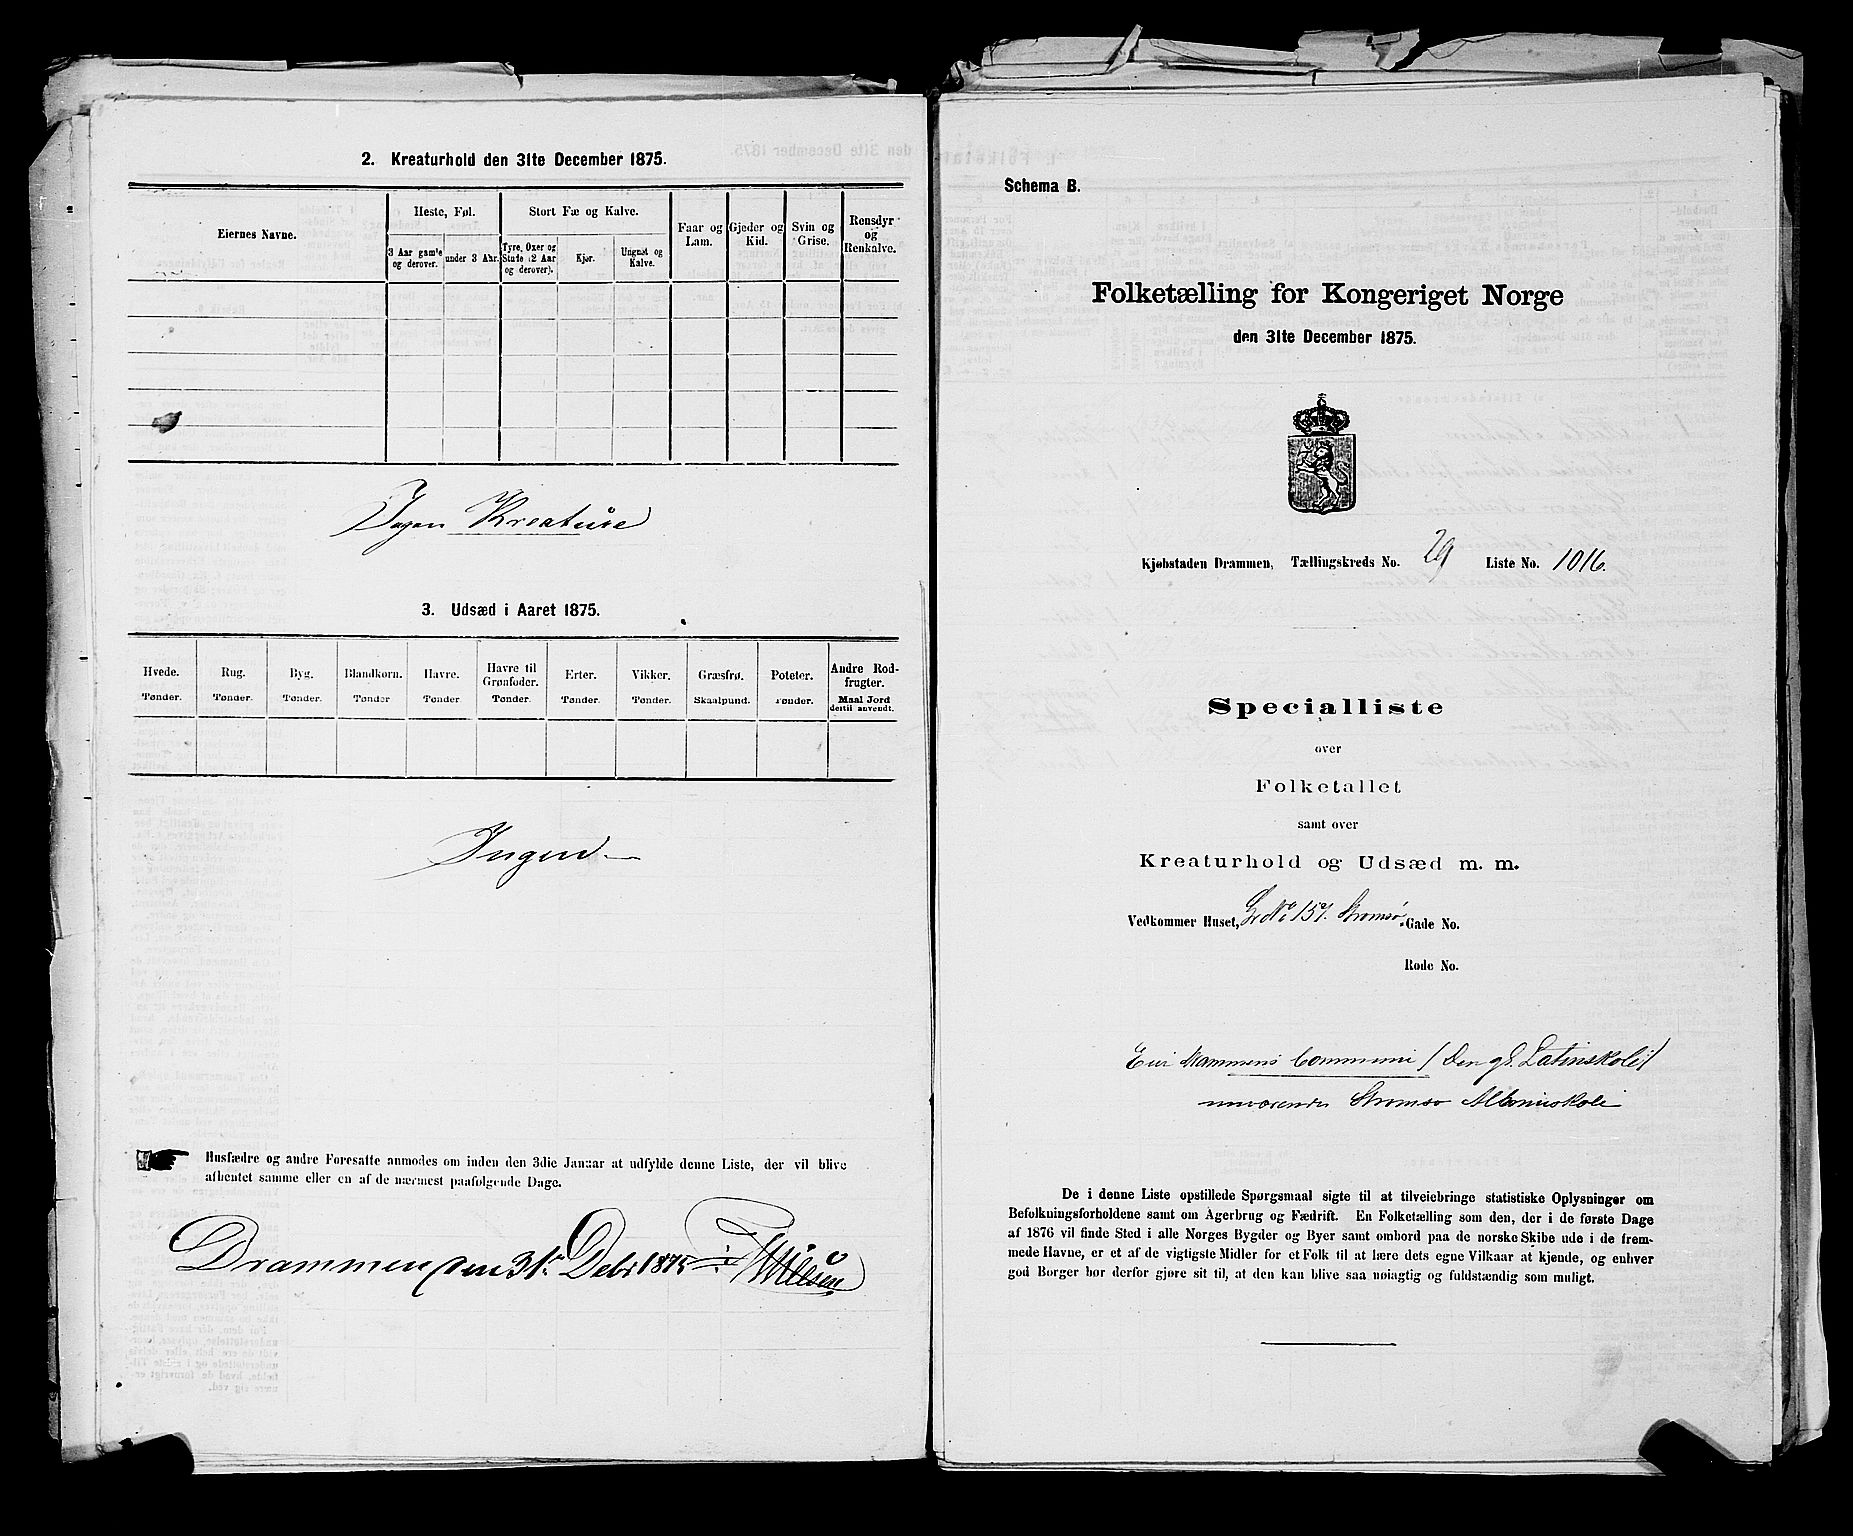 2. Kreaturhold den 31te December 1875.
Eiernes Navne.
Heste, Føl.
3 Aar gamle og derover.
under 3 Ahr.
Stort Fæ og Kalve.
Tyre, Oxer og Stude (2 Aar og derover).
Kjør.
Ungnöt og Kalve.
Faar og Lam.
Gjeder og Kid.
Svin og Grise.
Rensdyr og Renkalve.
Ingen Kreature
3. Udsæd i Aaret 1875.
Hvede. Rug. Byg. Blandkorn. Havre. Havre til Grønfoder. Erter. Vikker. Græsfrø. Poteter. Andre Rodfrugter.
Tønder. Tønder. Tønder. Tønder Tønder. Tønder. Tønder. Tønder. Skaalpund. Tønder. Maal Jord dertil anvendt.
Ingen
Husfædre og andre Foresatte anmodes om inden den 3die Januar at udfylde denne Liste, der vil blive
afhentet samme eller en af de nærmest paafølgende Dage.
Drammen den 31te Debr 1875
Schema B.
Folketælling for Kongeriget Norge
den 31te December 1875.
Kjøbstaden Drammen, Tællingskreds No. 29 Liste No. 1016.
Specialliste
over
Folketallet
samt over
Kreaturhold og Udsæd m. m.
Vedkommer Huset, Gr No 157. Strømsø Gade No.
Rode No.
Eier Drammens Commune / Den gl. Latinskole /
nuværende Strømsø Almueskole
De i denne Liste opstillede Spørgsmaal sigte til at tilveiebringe statistiske Oplysninger om
Befolkningsforholdene samt om Agerbrug og Fædrift. En Folketælling som den, der i de første Dage
af 1876 vil finde Sted i alle Norges Bygder og Byer samt ombord paa de norske Skibe ude i de frem-
mede Havne, er et af de vigtigste Midler for et Folk til at lære dets egne Vilkaar at kjende, og enhver
god Borger bør derfor gjøre sit til, at den kan blive saa nøiagtig og fuldstændig som muligt.